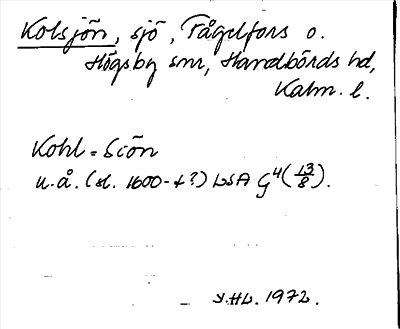 Kolsjön, sjö, Fågelfors o.
Högsby snr, Handbörds hd,
Kalm. l.
Kohl=Siön
u.å. (sl. 1600-t?) LSA G4(13/8).
J.HL. 1972.